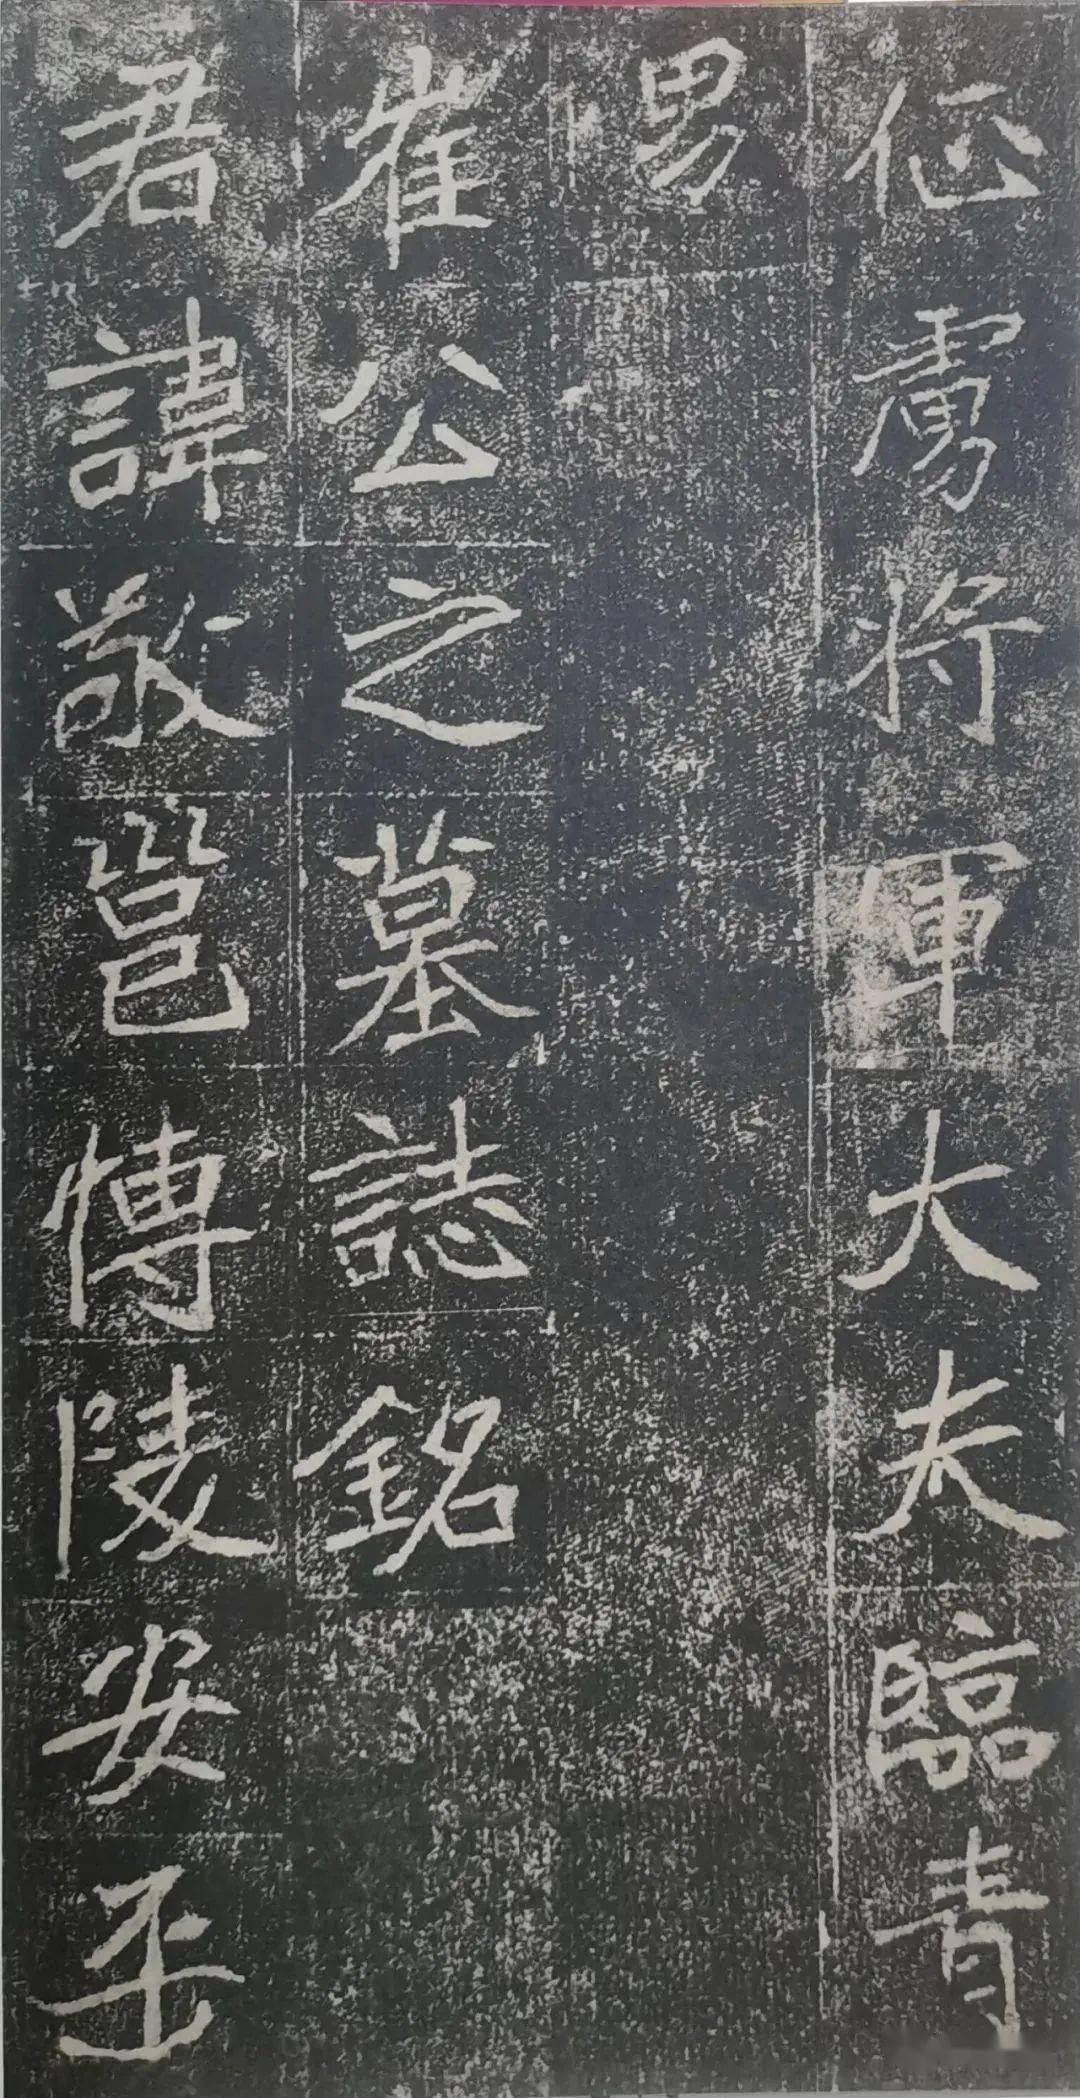 征虜将軍大夫臨青
男
崔公之墓誌銘
君諱敬邕愽陵安平